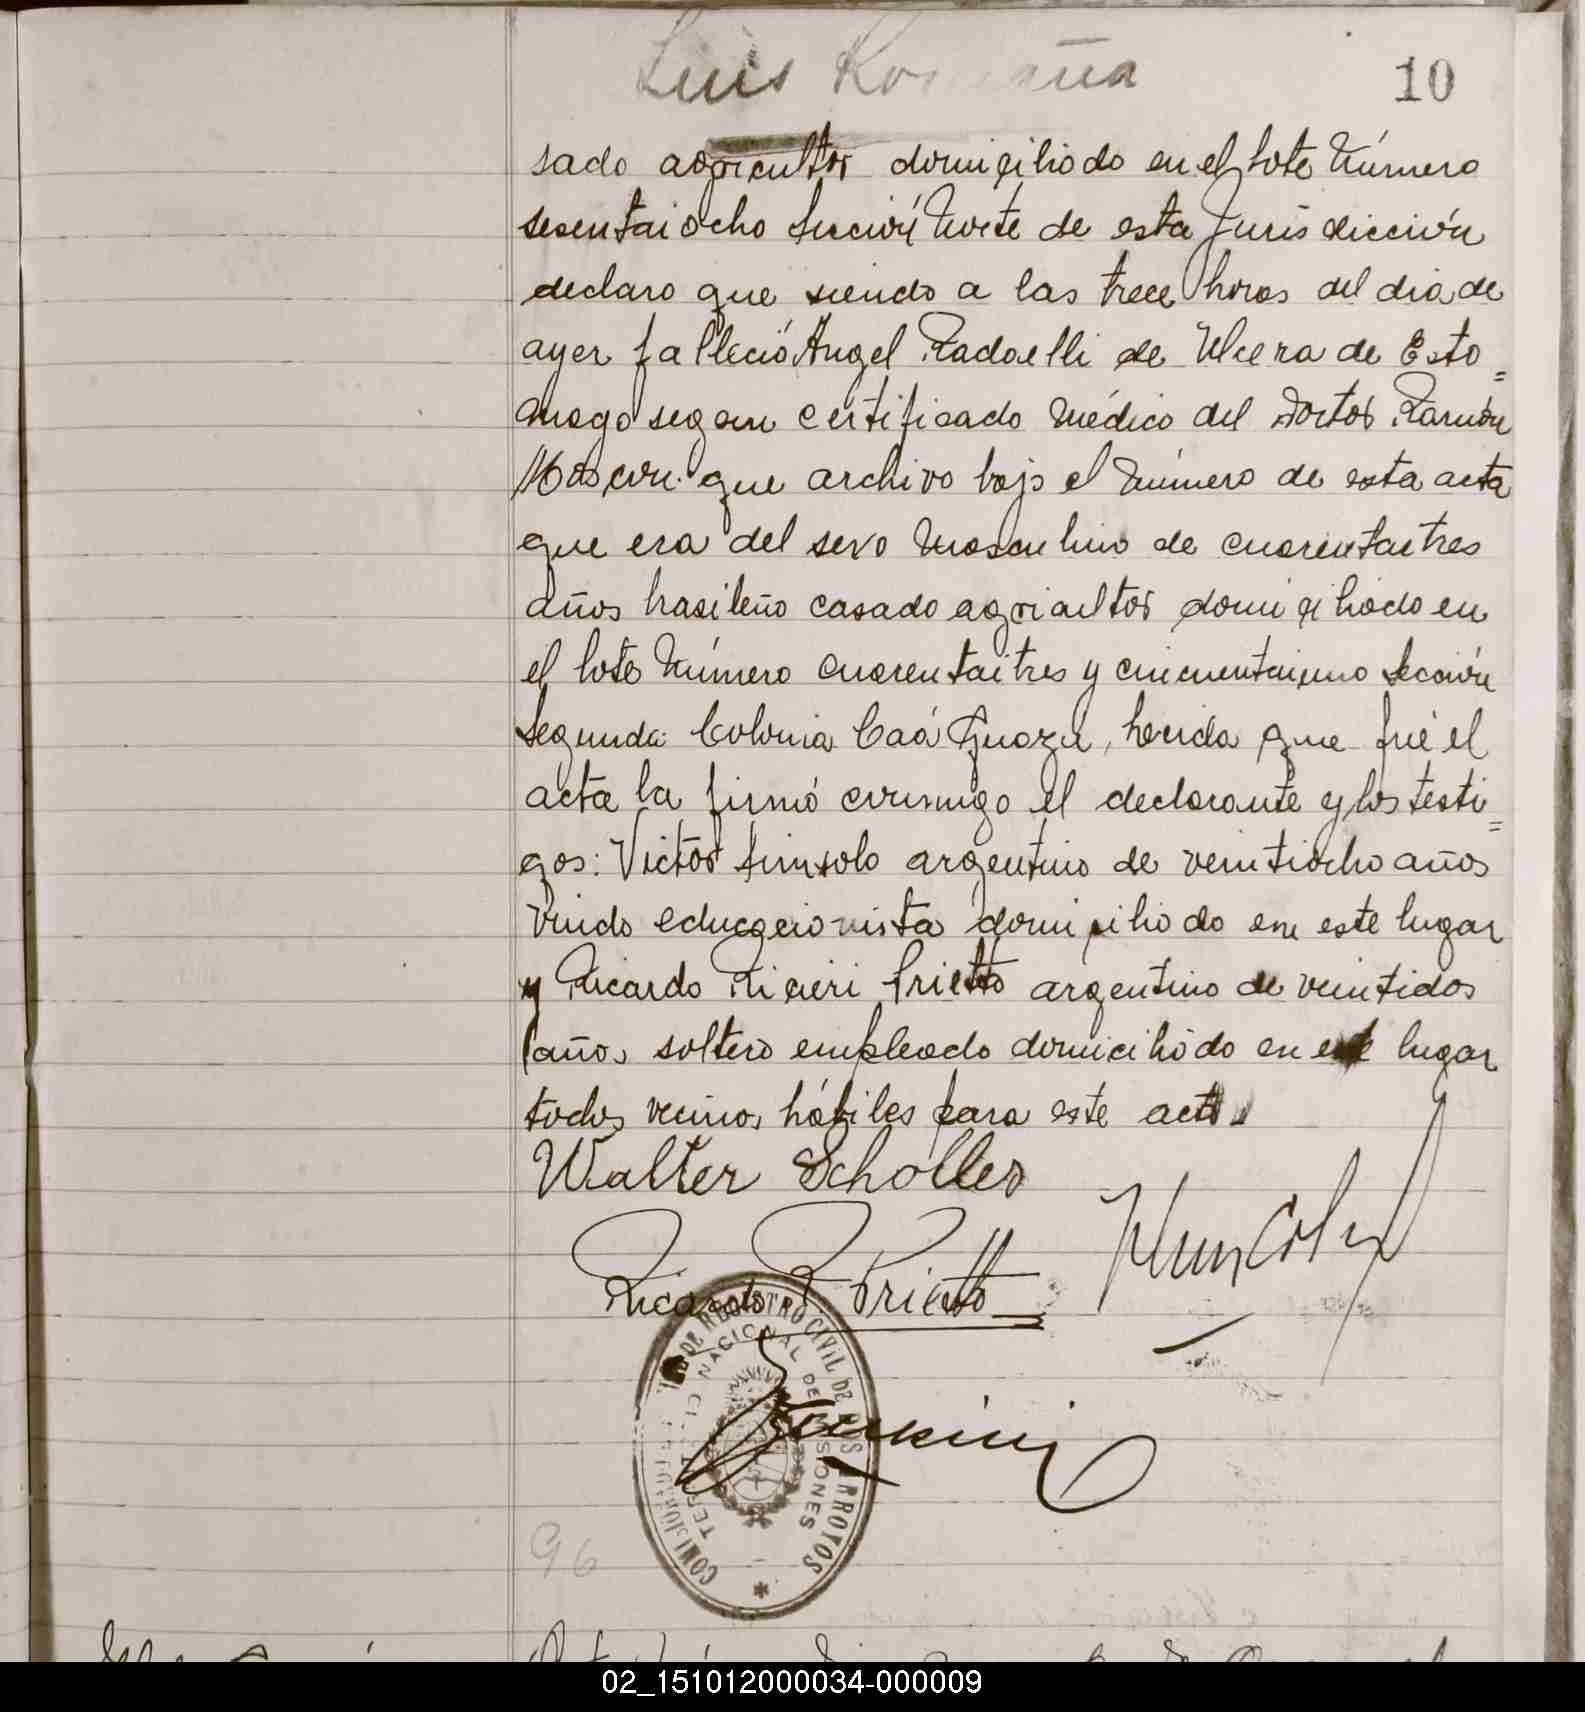 Luis Romaña
10
sado agricultor domiciliado en el lote número
sesentaiocho sección Norte de esta Jurisdicción
declaro que siendo a las trece horas del dia de
ayer falleció Angel Radaelli de Ulcera de Esto=
mago segun certificado médico del doctor Ramón
que archivo bajo el número de esta acta
que era del sexo masculino de cuarentaitres
años brasileño casado agricultor domiciliado en
el lote número cuarentaitres y cincuentaiuno sección
segunda Colonia Caá Guazú, heida que fué el
acta la firmó conmigo el declarante y los testi=
gos: Victor argentino de veintiocho años
viudo educacionista domiciliado en este lugar
y Ricardo Ricieri Prietto argentino de veintidos
años soltero empleado domiciliado en este lugar
todos vecinos hábiles para este acto
Walter Scholler
Ricardo R Prietto
REGISTRO CIVIL DE DOS ARROYOS
TERRITORIO NACIONAL DE MISIONES
96
02_151012000034-000009